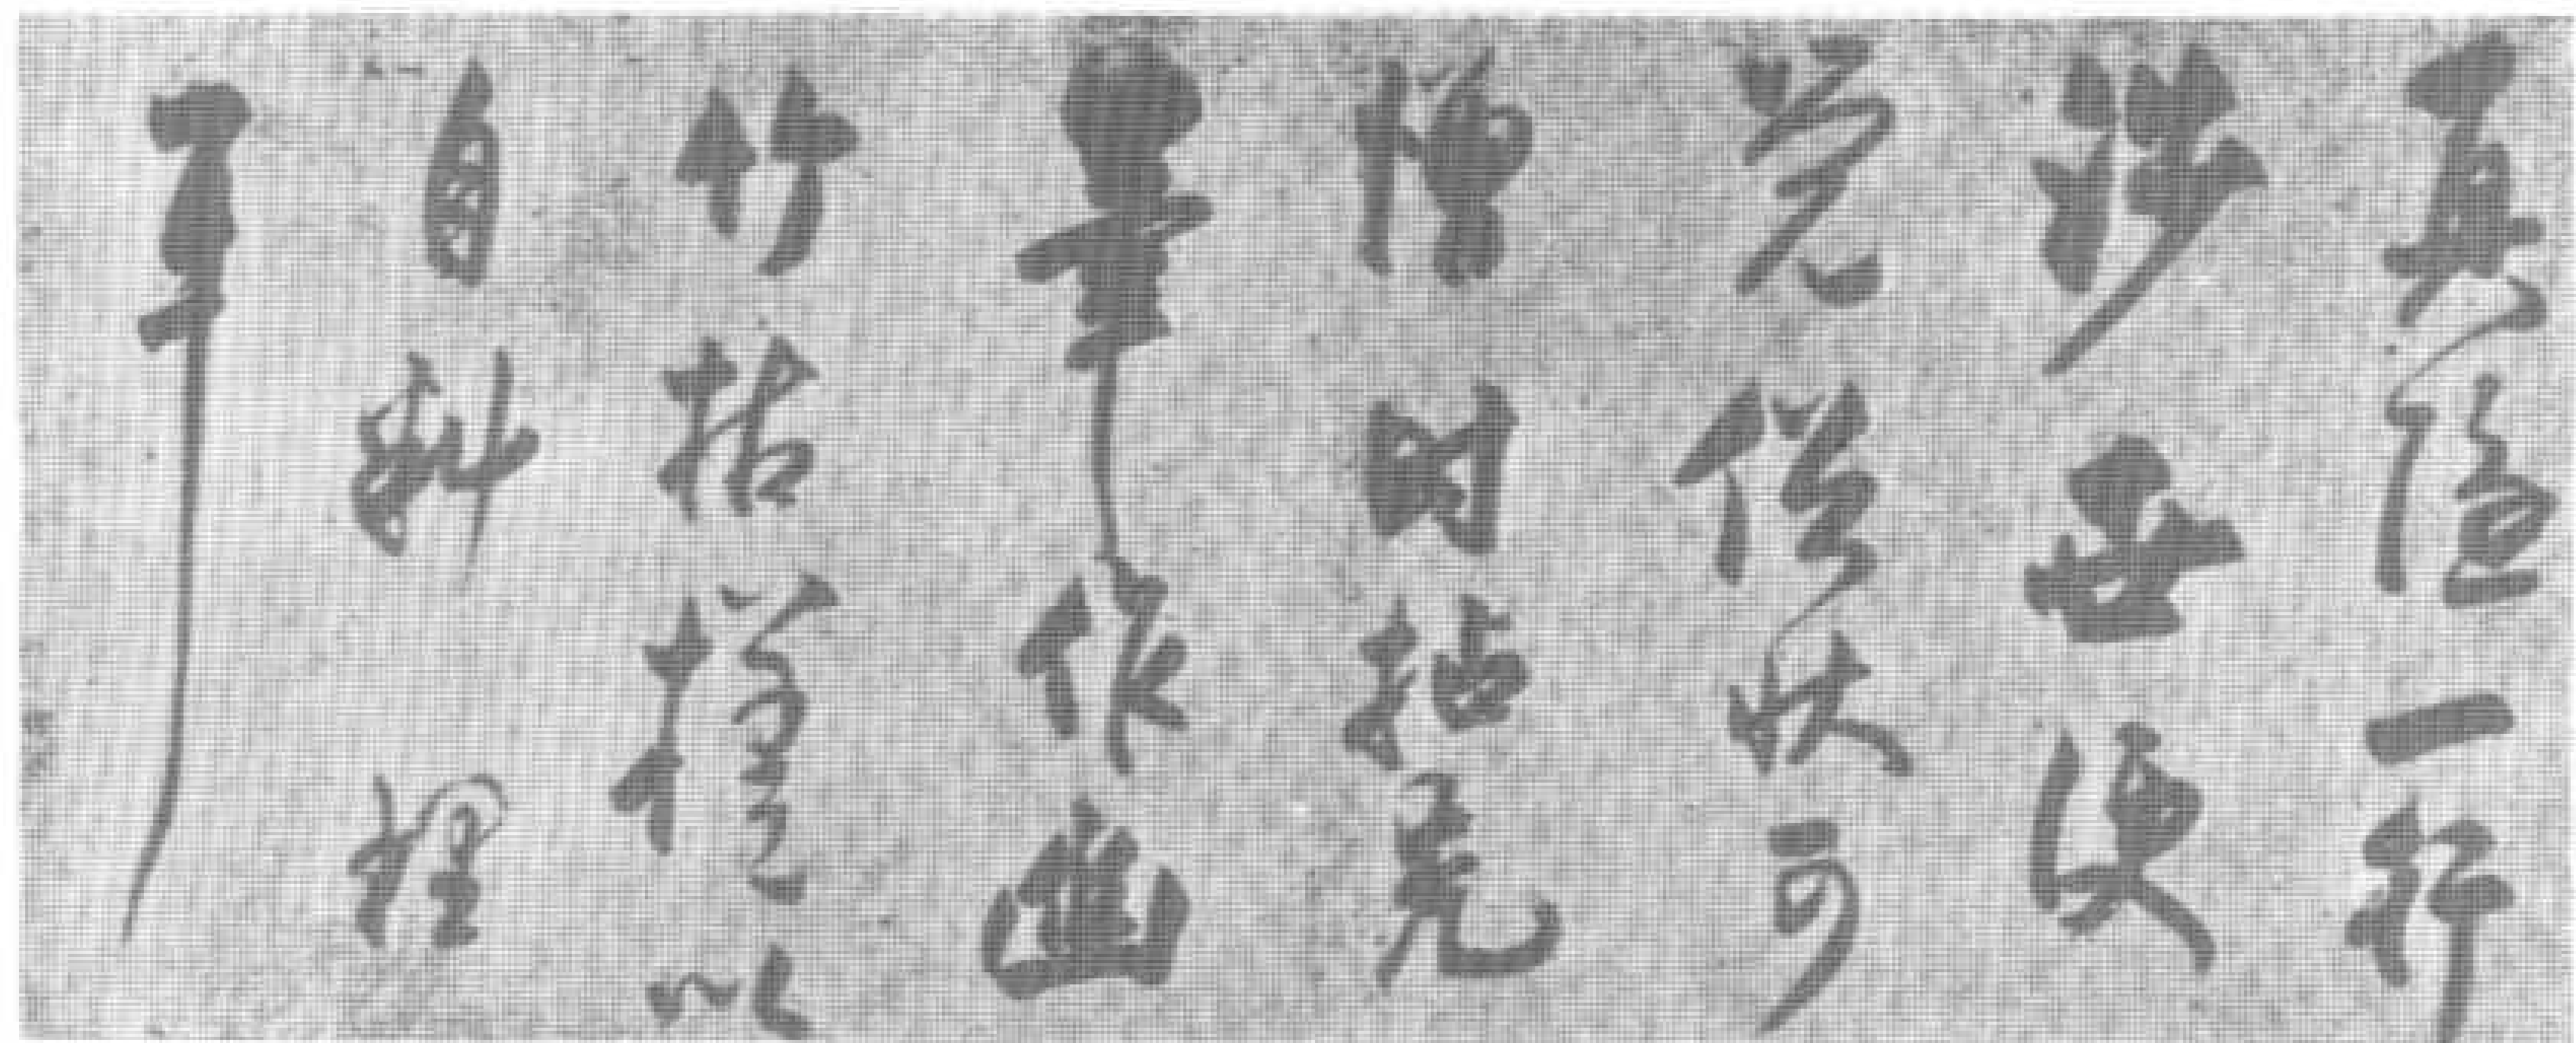 真隱一行
涉世便
覺俗狀可
憎时拈禿
筆作幽
竹枯槎以
自料理
耳